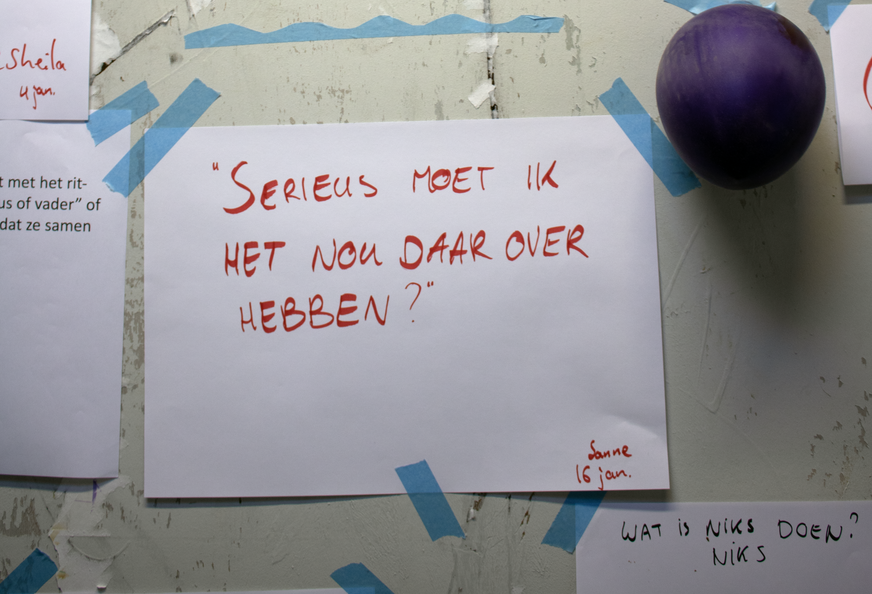 Sheila
4 jan.
t met het rit-
us of vader” of
dat ze samen
"SERIEUS MOET IK
HET NOU DAAR OVER
HEBBEN?"
Sanne
16 jan.
WAT IS NIKS DOEN?
NIKS